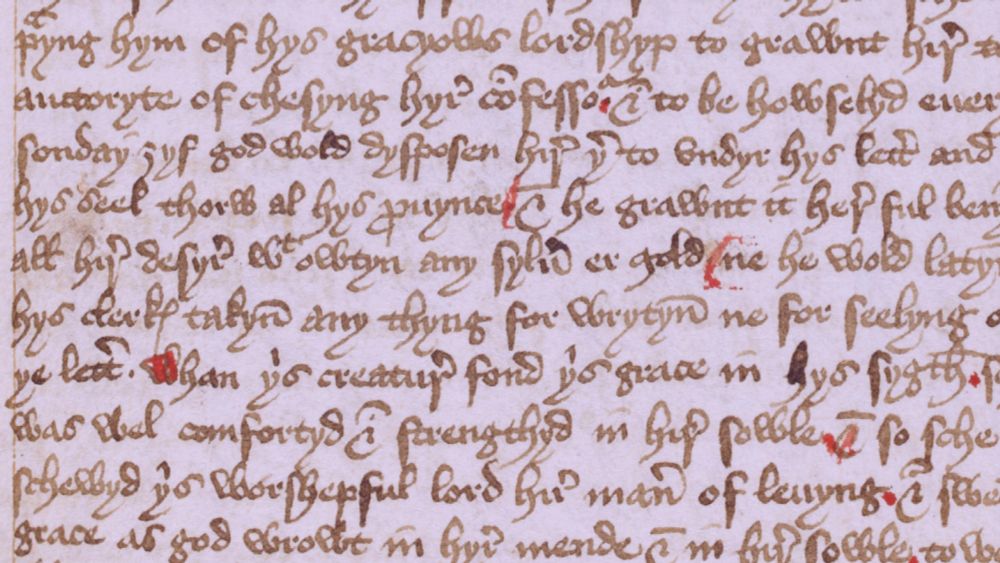 pyng hym of hys gracyows lordshyp to grawnt hir
auctoryte of chesyng hyr cōfessor & to be howselyd euery
sonday ȝyf god wold dysposen hir þͭ to vndyr hys lettr and
hys seel thorw al hys prouynce & he grawnt it her ful ben
all hir desyr wͭ owtyn any syluer er gold ne he wold latyn
hys clerkꝭ takyn any thyng for wrytyn ne for seelyng
ye lettr. Whan yis creatur fond yis grace in hys sygth.
was wel comfortyd & strengthyd in hir sowle & so sche
schewyd yis worshepful lord hir maner of leuyng. & swe
grace as god wrowt in hyr mende & in hir sowle. to